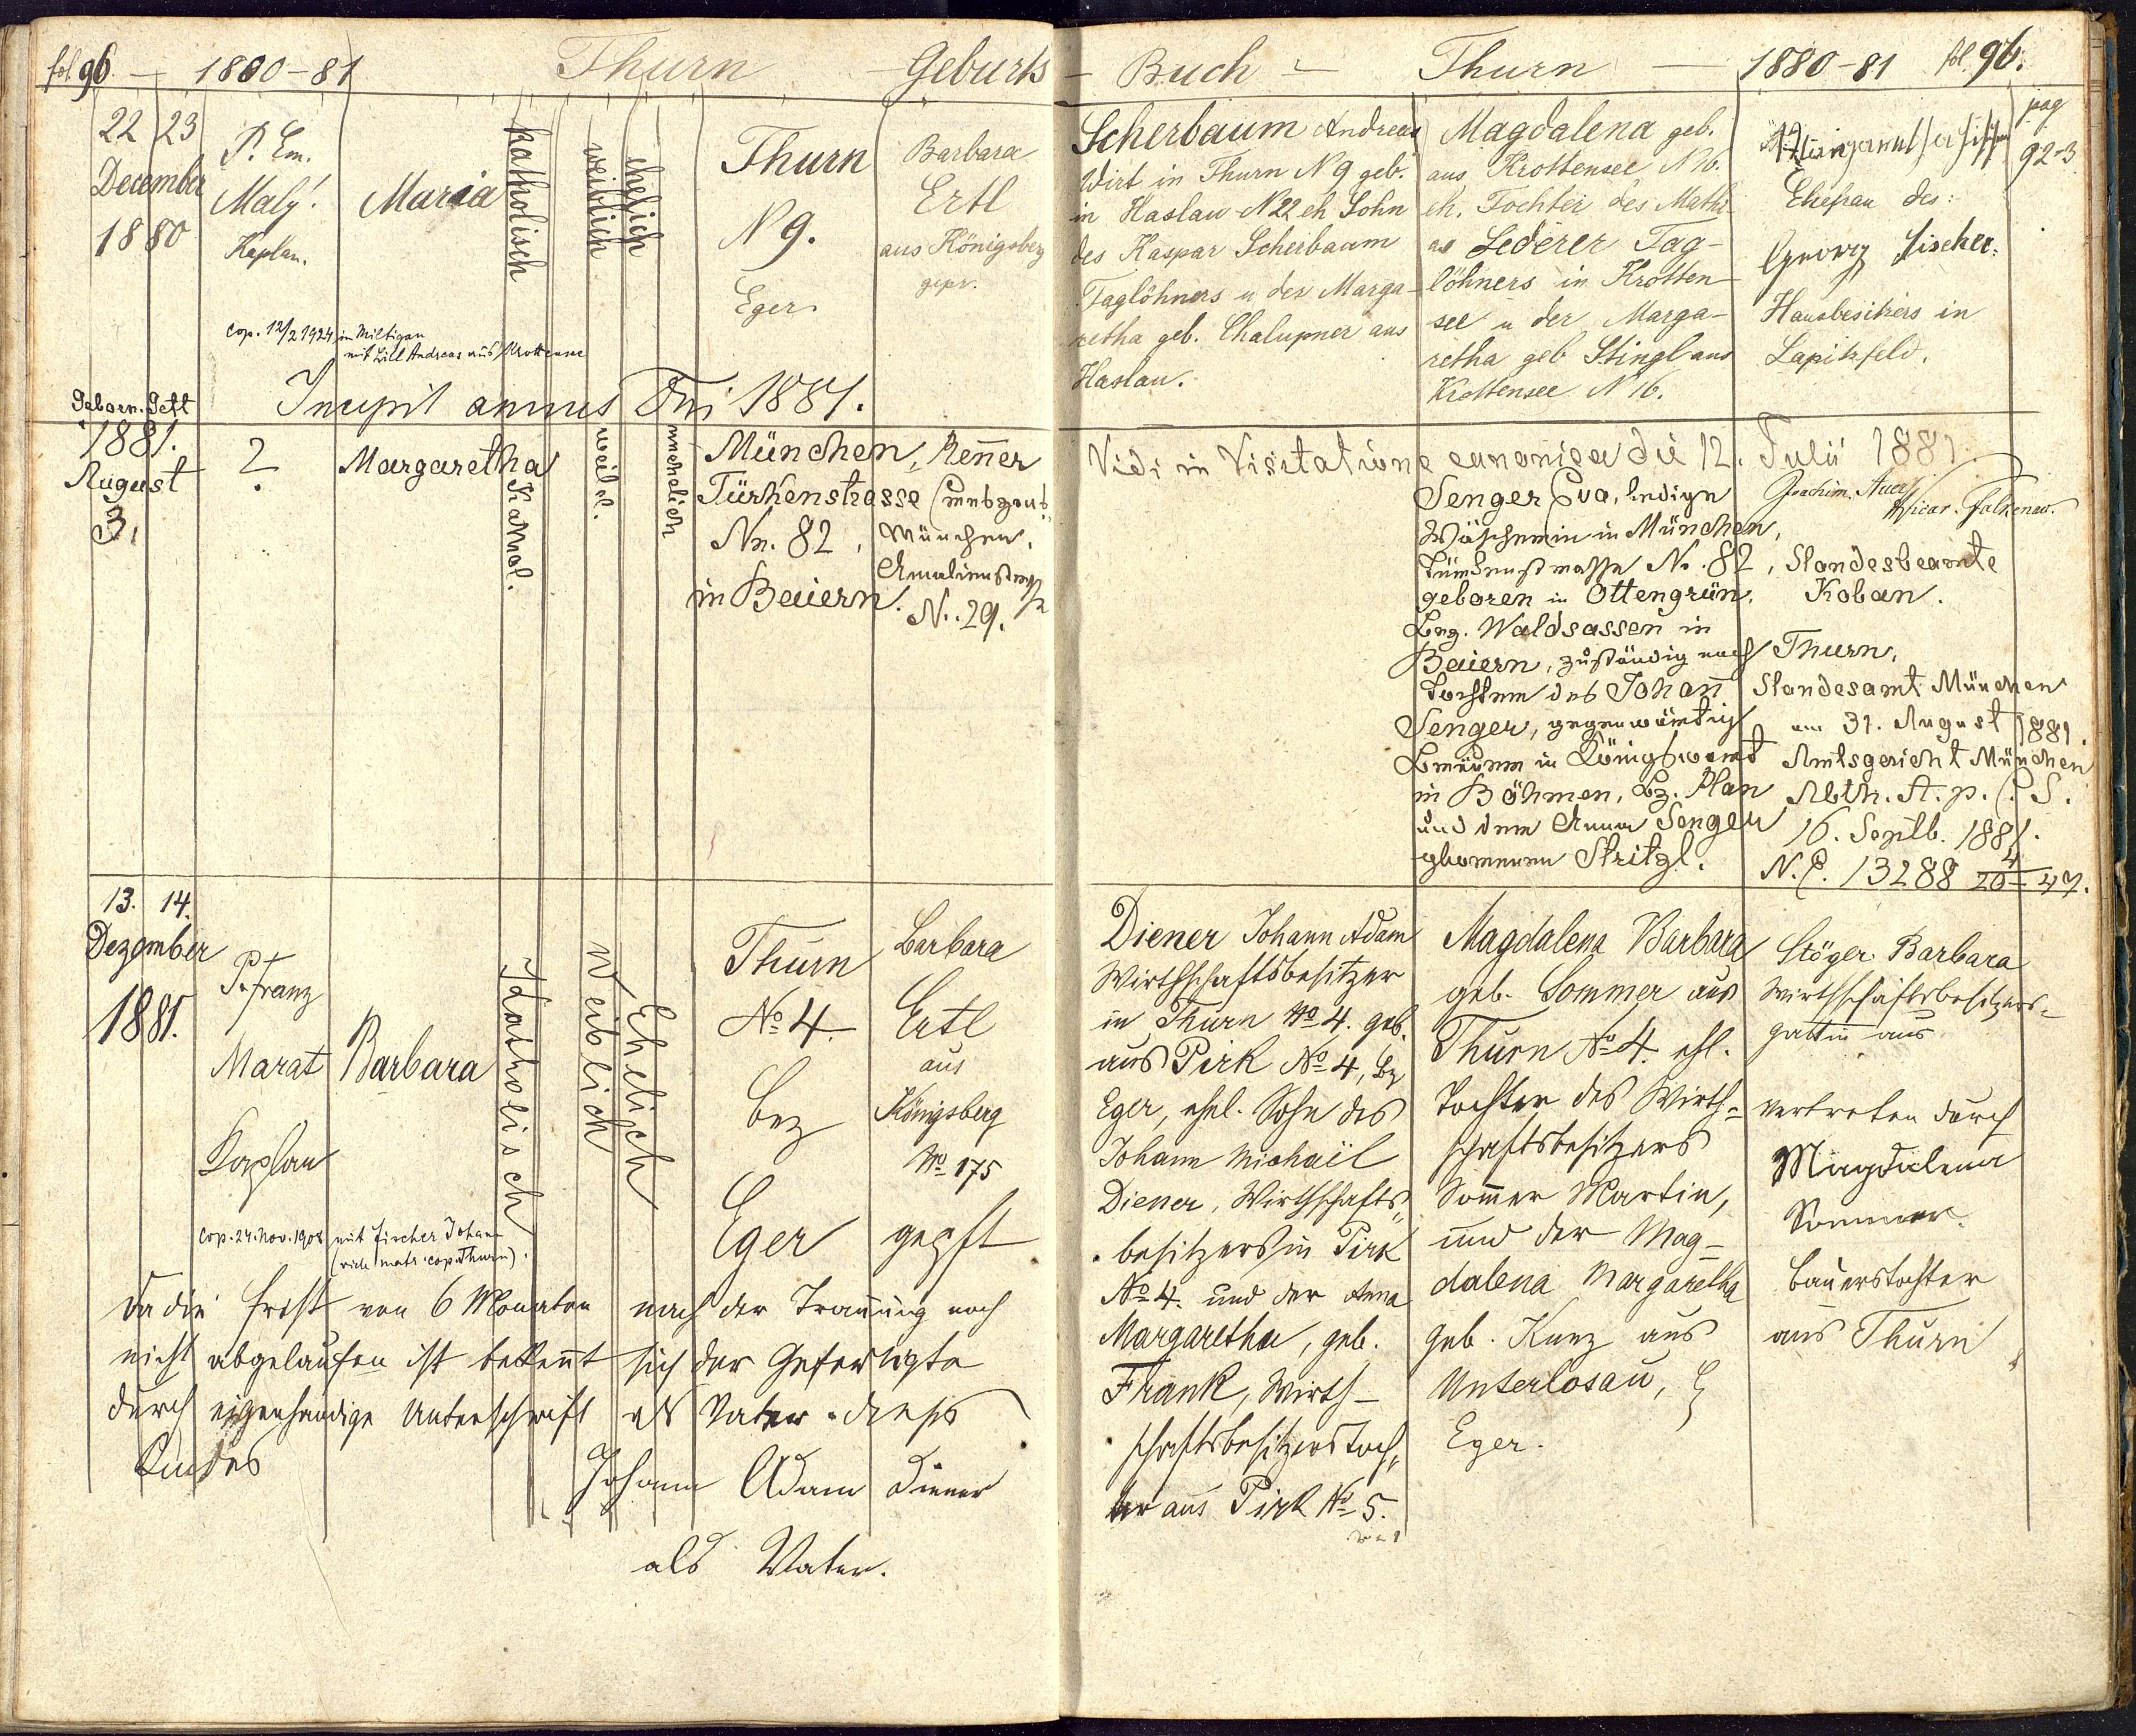 fol 96. — 1880-81 Thurn Geburts - Buch - Thurn — 1880-81 fol. 96.
22 23
December
1880
P. Em.
Maly!
Kaplan.
Maria
katholisch
weiblich
ehelich
Thurn
N 9.
Eger
Barbara
Ertl
aus Königsberg
gepr.
Scherbaum Andreas
Wirt in Thurn N 9 geb.
in Haslau N 22 eh Sohn
des Kaspar Scherbaum
Taglöhners u der Marga-
retha geb. Chalupner aus
Haslau.
Magdalena geb.
aus Krottensee N 16.
eh. Tochter des Mathi-
as Lederer Tag-
löhners in Krotten-
see u der Marga-
retha geb Stingl aus
Krottensee N 16.
Ehefrau des:
Georg Fischer.
Hausbesitzers in
Lapitzfeld.
pag
92-3
cop. 12/2 1924 in Miltigau
mit Lill Andreas aus Krottensee
Incipit annus Dni 1881.
Geboren. Gett
1881.
August
3.
?
Margaretha
Kathol.
weibl.
unehelich
München,
Türkenstrasse
Nr. 82,
in Baiern.
Renner
München,
Amalienstraße
N. 29.
Vidi in Visitatione canonica die 12. Julii 1881.
Joachim. Auer
Vicar. Falkenau.
Senger Eva, ledige
Wäscherin in München,
Türkenstrasse No. 82,
geboren in Ottengrün,
Bzg. Waldsassen in
Baiern, zuständig nach
Tochter des Johann
Senger, gegenwärtig
in Königswart
in Böhmen, Bz. Plan
und der Anna Senger
geborenen Stritzl.
Standesbeamte
Koban.
Thurn,
Standesamt München
am 31. August 1881.
Amtsgericht München
Abth. A. p. C. S.
16. Septb. 1881.
N. E. 13288
13. 14.
Dezember
1881.
P. Franz
Marat
Kaplan
Barbara
Katholisch
Weiblich
Ehelich
Thurn
No 4.
Bez
Eger
Barbara
Ertl
aus
Königsberg
No 175
gepft
Diener Johann Adam
Wirthschaftsbesitzer
in Thurn No 4. geb.
aus Pirk No 4, Bz
Eger, ehel. Sohn des
Johann Michaïl
Diener, Wirthschafts-
besitzers in Pirk
No 4. und der Anna
Margaretha, geb.
Frank, Wirth-
schaftsbesitzerstoch-
ter aus Pirk No 5.
Magdalena Barbara
geb. Sommer aus
Thurn No 4. ehl.
Tochter des Wirth-
schaftsbesitzers
Sommer Martin,
und der Mag-
dalena Margaretha
geb. Kunz aus
Unterlosau, Bz
Eger.
Stöger Barbara
Wirthschaftsbesitzers-
gattin aus
vertreten durch
Magdalena
Sommer
Bauerstochter
aus Thurn
cop. 24. Nov. 1908 mit Fischer Johann
(vide matr. cop. Thurn).
Da die Frist von 6 Monaten nach der Trauung noch
nicht abgelaufen ist bekennt sich der Gefertigte
durch eigenhändige Unterschrift als Vater dieses
Kindes
Johann Adam Diener
als Vater.